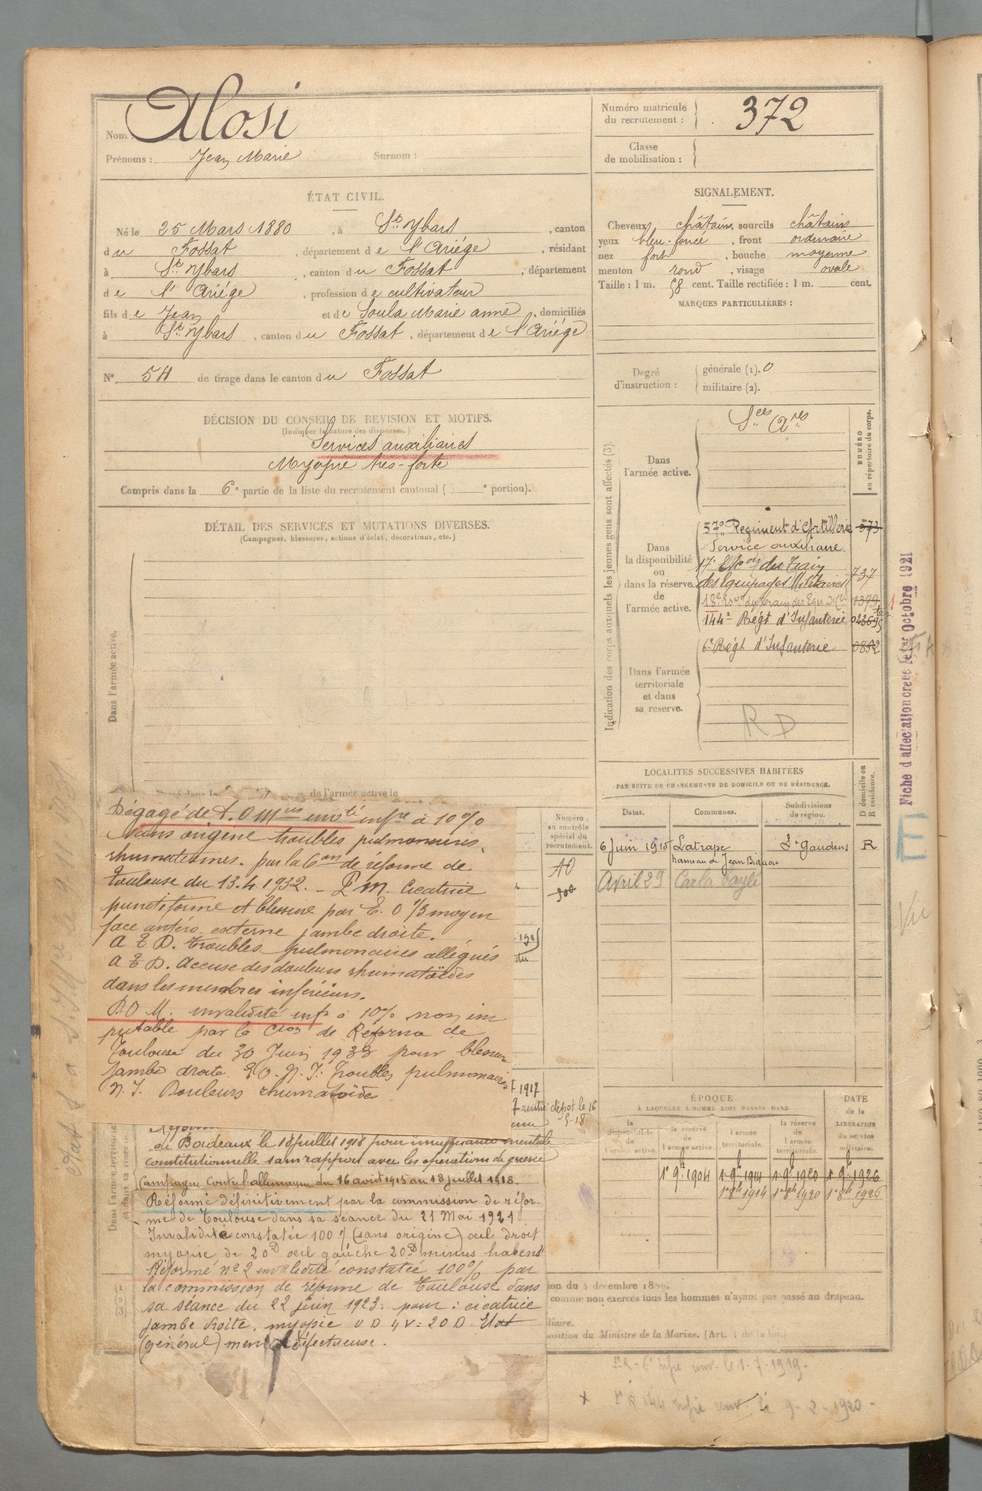 Nom : Alosi
Prénoms : Jean Marie Surnom :
Numéro matricule du recrutement : 372
Classe de mobilisation :
ÉTAT CIVIL.
Né le 25 Mars 1880, à St Ybars, canton
du Fossat, département de l'Ariège, résidant
à St Ybars, canton du Fossat, département
de l'Ariège, profession de cultivateur
fils de Jean et de Soula Marie anne, domiciliés
à St Ybars, canton du Fossat, département de l'Ariège
N° 54 de tirage dans le canton du Fossat
SIGNALEMENT.
Cheveux châtains, sourcils châtains
yeux bleu-foncé, front ordinaire
nez fort, bouche moyenne
menton rond, visage ovale
Taille : 1 m. 58 cent. Taille rectifiée : 1 m. cent.
MARQUES PARTICULIÈRES :
Degré d'instruction : générale (1). 0
militaire (2).
DÉCISION DU CONSEIL DE REVISION ET MOTIFS.
(Indiquer la nature des dispenses.)
Services auxiliaires
Myopie très-forte
Compris dans la 6e partie de la liste du recrutement cantonal ( e portion).
DÉTAIL DES SERVICES ET MUTATIONS DIVERSES.
(Campagnes, blessures, actions d'éclat, décorations, etc.)
Dans l'armée active.
Indication des corps auxquels les jeunes gens sont affectés (3).
NUMÉRO au répertoire du corps.
Dans l'armée active.
Sces Ares
Dans la disponibilité ou dans la réserve de l'armée active.
57e Régiment d'Artillerie 573
Service auxiliaire
17e Escon du Train
des Equipages Militaires 737
144e Régt d'Infanterie
6e Régt d'Infanterie 0852
Dans l'armée territoriale et dans sa réserve.
RD
Fiche d'affectation créée le 1er Octobre 1921
LOCALITÉS SUCCESSIVES HABITÉES
PAR SUITE DE CHANGEMENTS DE DOMICILE OU DE RÉSIDENCE.
Dates. Communes. Subdivisions de région. D domicile ou R résidence.
6 juin 1915 Latrape St Gaudens R
hameau de Jean Bignau
Avril 29 Carla Bayle
E
Vu
Numéro au contrôle spécial du recrutement.
Dégagé de t. O Mres invté infre à 10%
sans origine troubles pulmonaires,
rhumatismes. par la Con de réforme de
Toulouse du 13.4.1932. - P.M. Cicatrice
punctiforme et blessure par E. O 1/3 moyen
face antéro externe jambe droite.
A E D. Troubles pulmonaires allégués
A E D. Accuse des douleurs rhumatoïdes
dans les membres inférieurs.
P.O.M. invalidité infre à 10% non im
putable par la Cion de Réforme de
Toulouse du 30 Juin 1933 pour blessure
jambe droite P.O. N.I. Troubles pulmonaires
N.I. Douleurs rhumatoïdes
rentré dépôt le 16
5-18
de Bordeaux le 18 juillet 1918 pour insuffisance mentale
constitutionnelle sans rapport avec les opérations de guerre
Campagne contre l'allemagne du 16 août 1915 au 18 juillet 1918.
Réformé définitivement par la commission de réfor-
me de Toulouse dans sa séance du 21 Mai 1921
Invalidité constatée 100% (sans origine) œil droit
myopie de 20D œil gauche 20D
Réformé n°2 invalidité constatée 100% par
la commission de réforme de Toulouse dans
sa séance du 22 juin 1923 : pour : cicatrice
jambe droite, myopie O D 4 V = 20 D Etat
(général) mental défectueux.
ÉPOQUE
À LAQUELLE L'HOMME DOIT PASSER DANS
la disponibilité de l'armée active. la réserve de l'armée active. l'armée territoriale. la réserve de l'armée territoriale.
DATE de la LIBÉRATION du service militaire.
1er 9bre 1904 1er 9bre 1911 1er 9bre 1920 1er 9bre 1926
comme non exercés tous les hommes n'ayant pas passé au drapeau.
position du Ministre de la Marine. (Art. de la loi.)